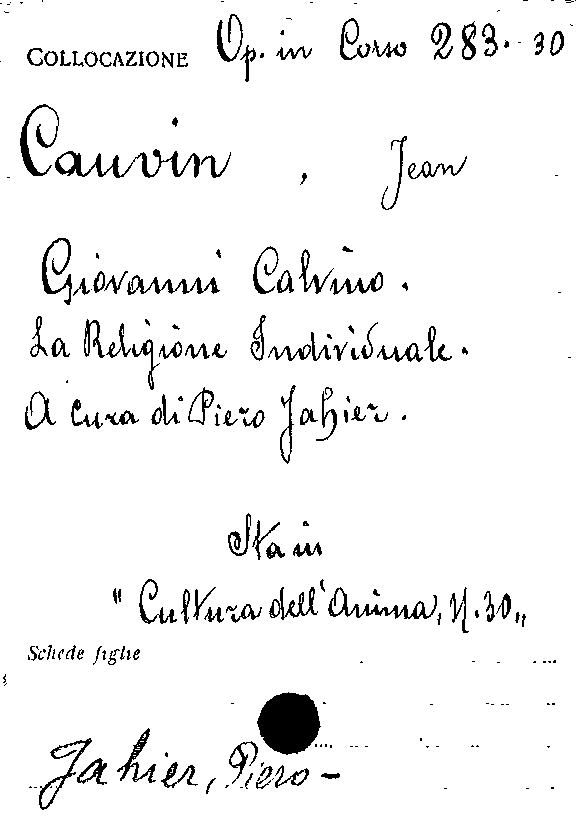 COLLOCAZIONE Op. in Corso 283. 30
Cauvin, Jean
Giovanni Calvino.
La Religione Individuale.
A cura di Piero Jahier.
Sta in
"Cultura dell'Anima, N. 30„
Schede figlie
Jahier, Piero -